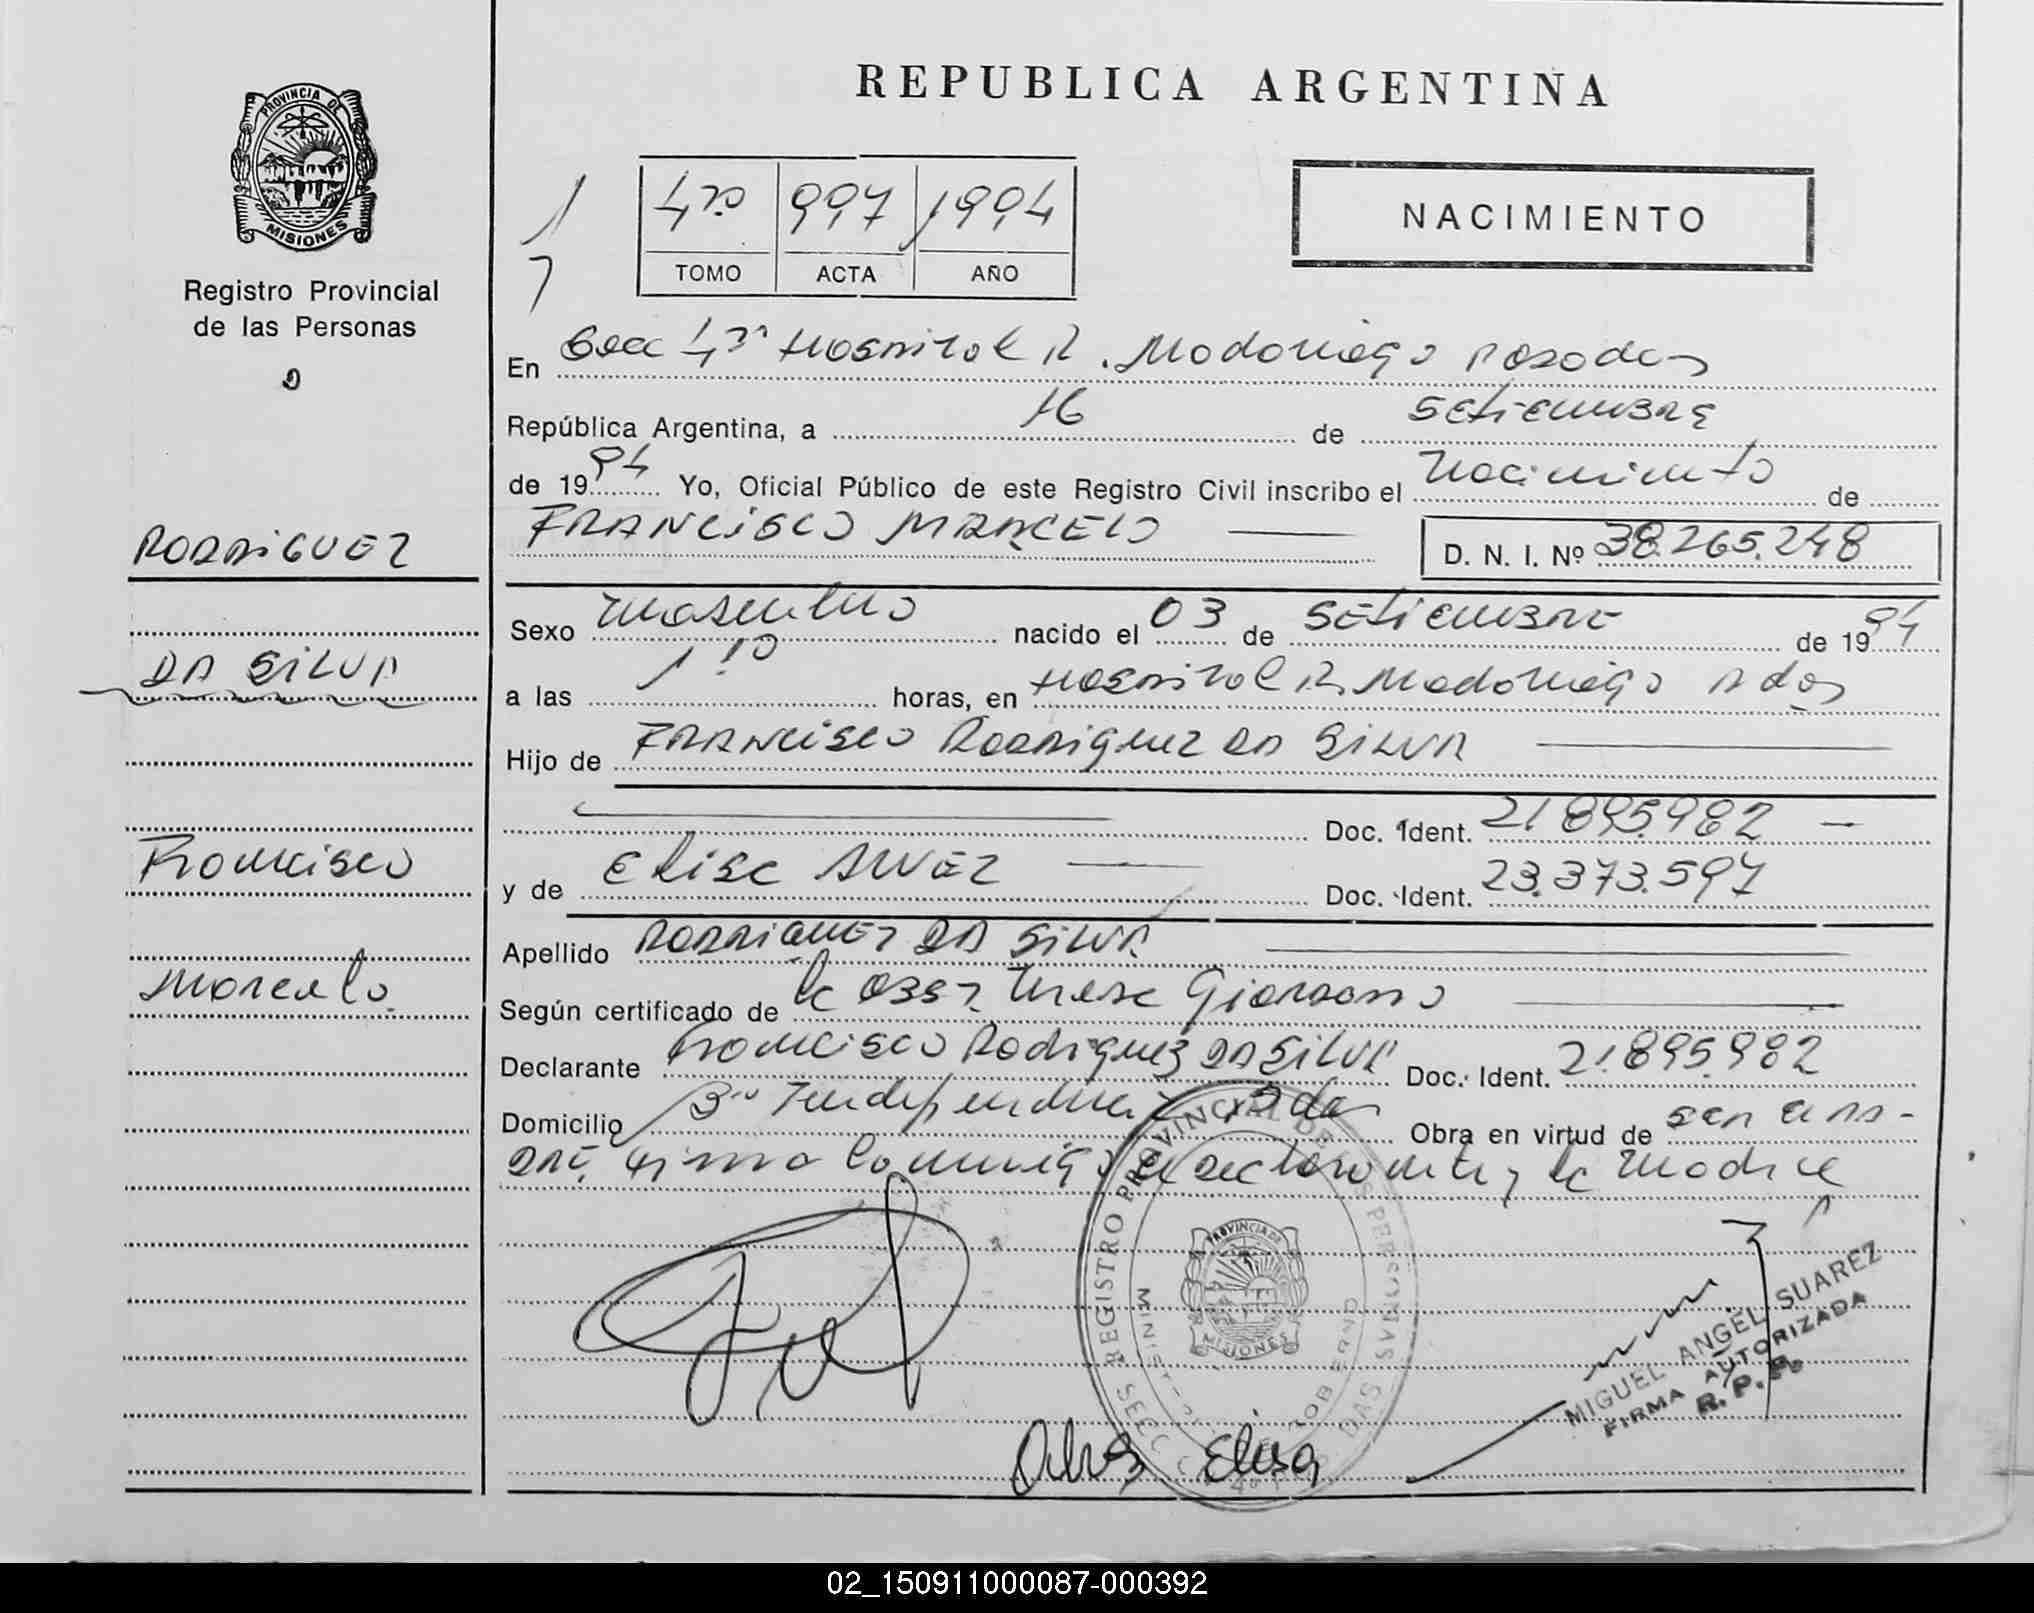 PROVINCIA DE
MISIONES
Registro Provincial
de las Personas
REPUBLICA ARGENTINA
4to 997 1994
TOMO ACTA AÑO
NACIMIENTO
En Secc 4ta Hospital R. Madariaga Posadas
República Argentina, a 16 de Setiembre
de 1994 Yo, Oficial Público de este Registro Civil inscribo el Nacimiento de
FRANCISCO MARCELO
D. N. I. Nº 38.265.248
RODRIGUEZ
DA SILVA
Francisco
Marcelo
Sexo masculino nacido el 03 de SETIEMBRE de 1994
a las 1 10 horas, en Hospital R. Madariaga Pdas
Hijo de FRANCISCO Rodriguez DA SILVA
Doc. Ident. 21.895.982
y de Elisa ALVEZ Doc. Ident. 23.373.597
Apellido RODRIGUEZ DA SILVA
Según certificado de la Obst Teresa
Declarante Francisco Rodriguez DA SILVA Doc. Ident. 21.895.982
Domicilio Bo Independencia Pdas Obra en virtud de ser el pa-
dre, firma conmigo el declarante y la madre
REGISTRO PROVINCIAL DE LAS PERSONAS
PROVINCIA DE
MISIONES
MIGUEL ANGEL SUAREZ
FIRMA AUTORIZADA
R.P.P.
Alvez Elisa
02_150911000087-000392